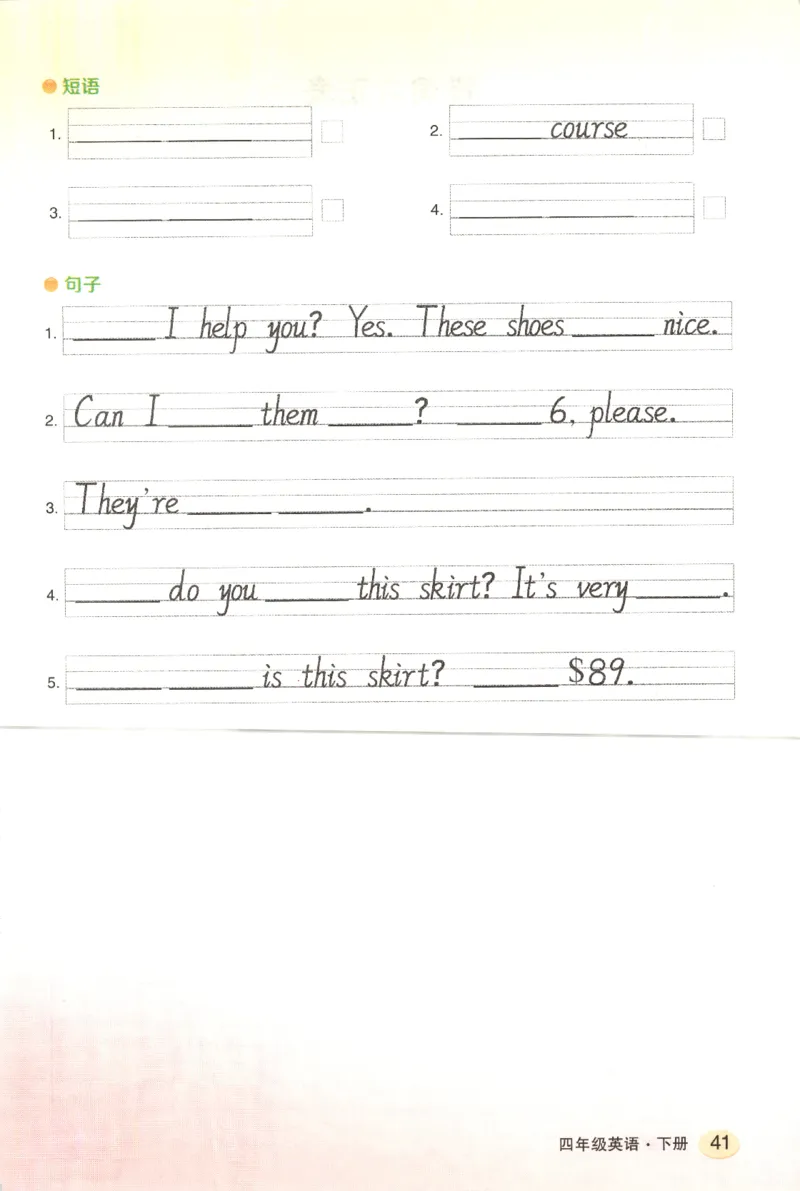 短语
1.
2. ______ course
3.
4.
句子
1. ______ I help you? Yes. These shoes ______ nice.
2. Can I ______ them ______? ______ 6, please.
3. They're ______ ______.
4. ______ do you ______ this skirt? It's very ______.
5. ______ ______ is this skirt? ______ $89.
四年级英语·下册 41